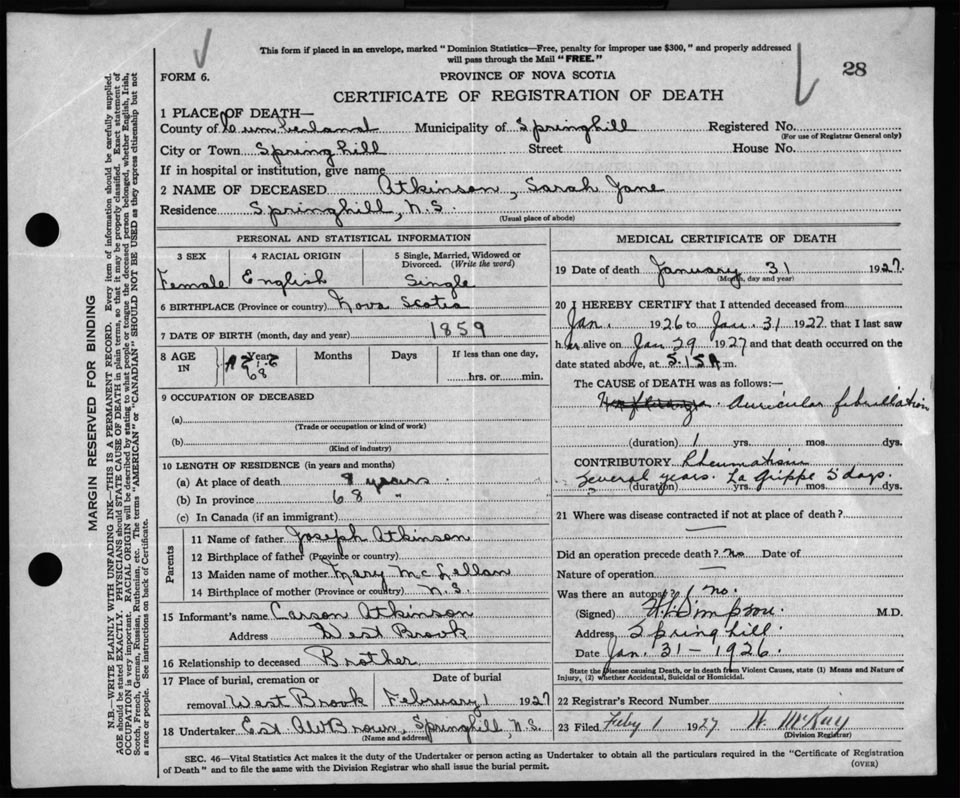 This form if placed in an envelope, marked "Dominion Statistics—Free, penalty for improper use $300," and properly addressed
will pass through the Mail "FREE."
28
FORM 6.
PROVINCE OF NOVA SCOTIA
CERTIFICATE OF REGISTRATION OF DEATH
1 PLACE OF DEATH—
County of Cumberland Municipality of Springhill Registered No.
(For use of Registrar General only)
City or Town Springhill Street House No.
If in hospital or institution, give name
2 NAME OF DECEASED Atkinson, Sarah Jane
Residence Springhill, N.S.
(Usual place of abode)
PERSONAL AND STATISTICAL INFORMATION
3 SEX 4 RACIAL ORIGIN 5 Single, Married, Widowed or Divorced. (Write the word)
Female English Single
6 BIRTHPLACE (Province or country) Nova Scotia
7 DATE OF BIRTH (month, day and year) 1859
8 AGE IN Years Months Days If less than one day,
68 hrs. or min.
9 OCCUPATION OF DECEASED
(a)
(Trade or occupation or kind of work)
(b)
(Kind of industry)
10 LENGTH OF RESIDENCE (in years and months)
(a) At place of death years
(b) In province 68 "
(c) In Canada (if an immigrant)
Parents
11 Name of father Joseph Atkinson
12 Birthplace of father (Province or country)
13 Maiden name of mother Mary McLellan
14 Birthplace of mother (Province or country) N.S.
15 Informant's name Carson Atkinson
Address West Brook
16 Relationship to deceased Brother
17 Place of burial, cremation or Date of burial
removal West Brook February 1 1927
18 Undertaker Est. AW Brown, Springhill, N.S.
(Name and address)
MEDICAL CERTIFICATE OF DEATH
19 Date of death January 31 1927.
(Month, day and year)
20 I HEREBY CERTIFY that I attended deceased from
Jan. 1926 to Jan. 31 1927 that I last saw
her alive on Jan 29 1927 and that death occurred on the
date stated above, at 5.15 A m.
The CAUSE of DEATH was as follows:—
Auricular fibrillation
(duration) 1 yrs. mos. dys.
CONTRIBUTORY Rheumatism
Several years. La Grippe 5 days
(duration) yrs. mos. dys.
21 Where was disease contracted if not at place of death?
Did an operation precede death? no Date of
Nature of operation
Was there an autopsy? no.
(Signed) Simpson. M.D.
Address Springhill.
Date Jan. 31 - 1926.
State the Disease causing Death, or in death from Violent Causes, state (1) Means and Nature of
Injury, (2) whether Accidental, Suicidal or Homicidal.
22 Registrar's Record Number
23 Filed Feby 1 1927 W. McKay
(Division Registrar)
SEC. 46—Vital Statistics Act makes it the duty of the Undertaker or person acting as Undertaker to obtain all the particulars required in the "Certificate of Registration
of Death" and to file the same with the Division Registrar who shall issue the burial permit.
(OVER)
MARGIN RESERVED FOR BINDING
N.B.—WRITE PLAINLY WITH UNFADING INK—THIS IS A PERMANENT RECORD. Every item of information should be carefully supplied.
AGE should be stated EXACTLY. PHYSICIANS should STATE CAUSE OF DEATH in plain terms, so that it may be properly classified. Exact statement of
OCCUPATION is very important. RACIAL ORIGIN will be described by stating to what people or tongue the deceased person belonged, whether English, Irish,
Scotch, French, German, Russian, Ruthenian, etc. The terms "AMERICAN" or "CANADIAN" SHOULD NOT BE USED as they express citizenship but not
a race or people. See instructions on back of Certificate.